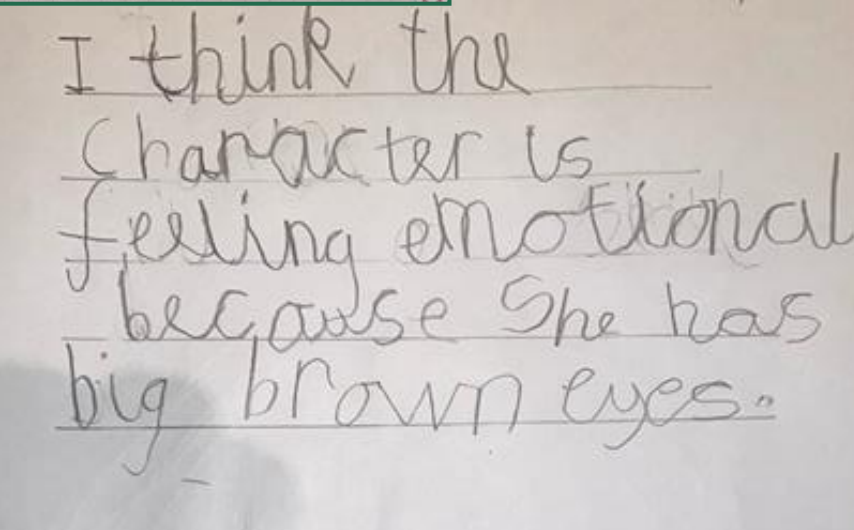 I think the
character is
feeling emotional
because She has
big brown eyes.